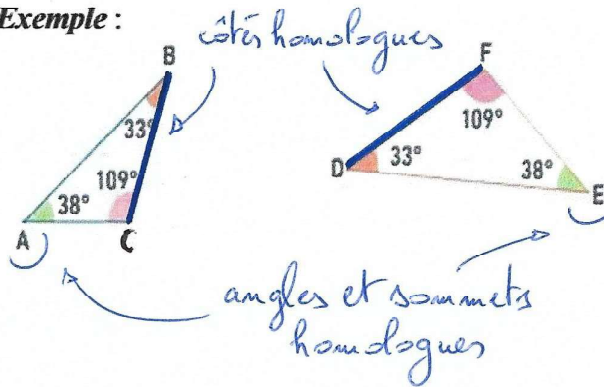 Exemple :
côtés homologues
B
F
33°
109°
109°
D
33°
38°
E
38°
A
C
angles et sommets
homologues